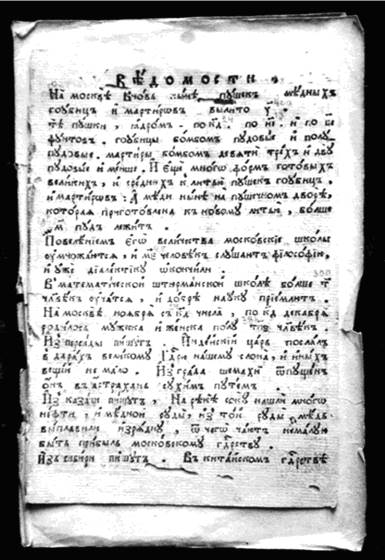 ВѢДОМОСТИ.
На москвѣ вновь ннѣ пушекъ мѣдныхъ
гоубицъ и мартировъ вылито ҂у҃.
тѣ пушки, ядромъ по к҃д. по и҃і. и по в҃і
фунтовъ. гоубицы бомбомъ пудовые и полу
пудовые. мартиры бомбомъ девяти трехъ и дву
пудовые и менше. И еще много формъ готовыхъ
великихъ, и среднихъ к литью пушекъ гоубицъ,
и мартировъ: А мѣди ннѣ на пушечномъ дворѣ,
которая приготовлена к новому литью, болше
м҃ пудъ лежитъ.
Повелениемъ его величества московские школы
умножаются, и м҃е человѣкъ слушаютъ философию,
и уже дїалектику окончили.
В математической штюрманской школѣ болше т҃
члвѣкъ учатся, и добрѣ науку приемлютъ.
На москвѣ ноября съ к҃д числа, по к҃д декабря
родилось мужска и женска полу т҃п҃ѕ члвѣкъ
Из персиды пишутъ. Индѣйский царь послалъ
в дарахъ великому гдрю нашему слона, и иныхъ
вещей не мало. Из града шемахи ѿпущенъ
онъ в астрахань сухимъ путемъ.
Из казани пишутъ. На рѣкѣ соку нашли много
нефти, и мѣдной руды, из той руды мѣдь
выплавили изрядну, ѿ чего чаютъ немалую
быть прибыль московскому гдрству.
Из сибири пишутъ. В китайскомъ гдрствѣ